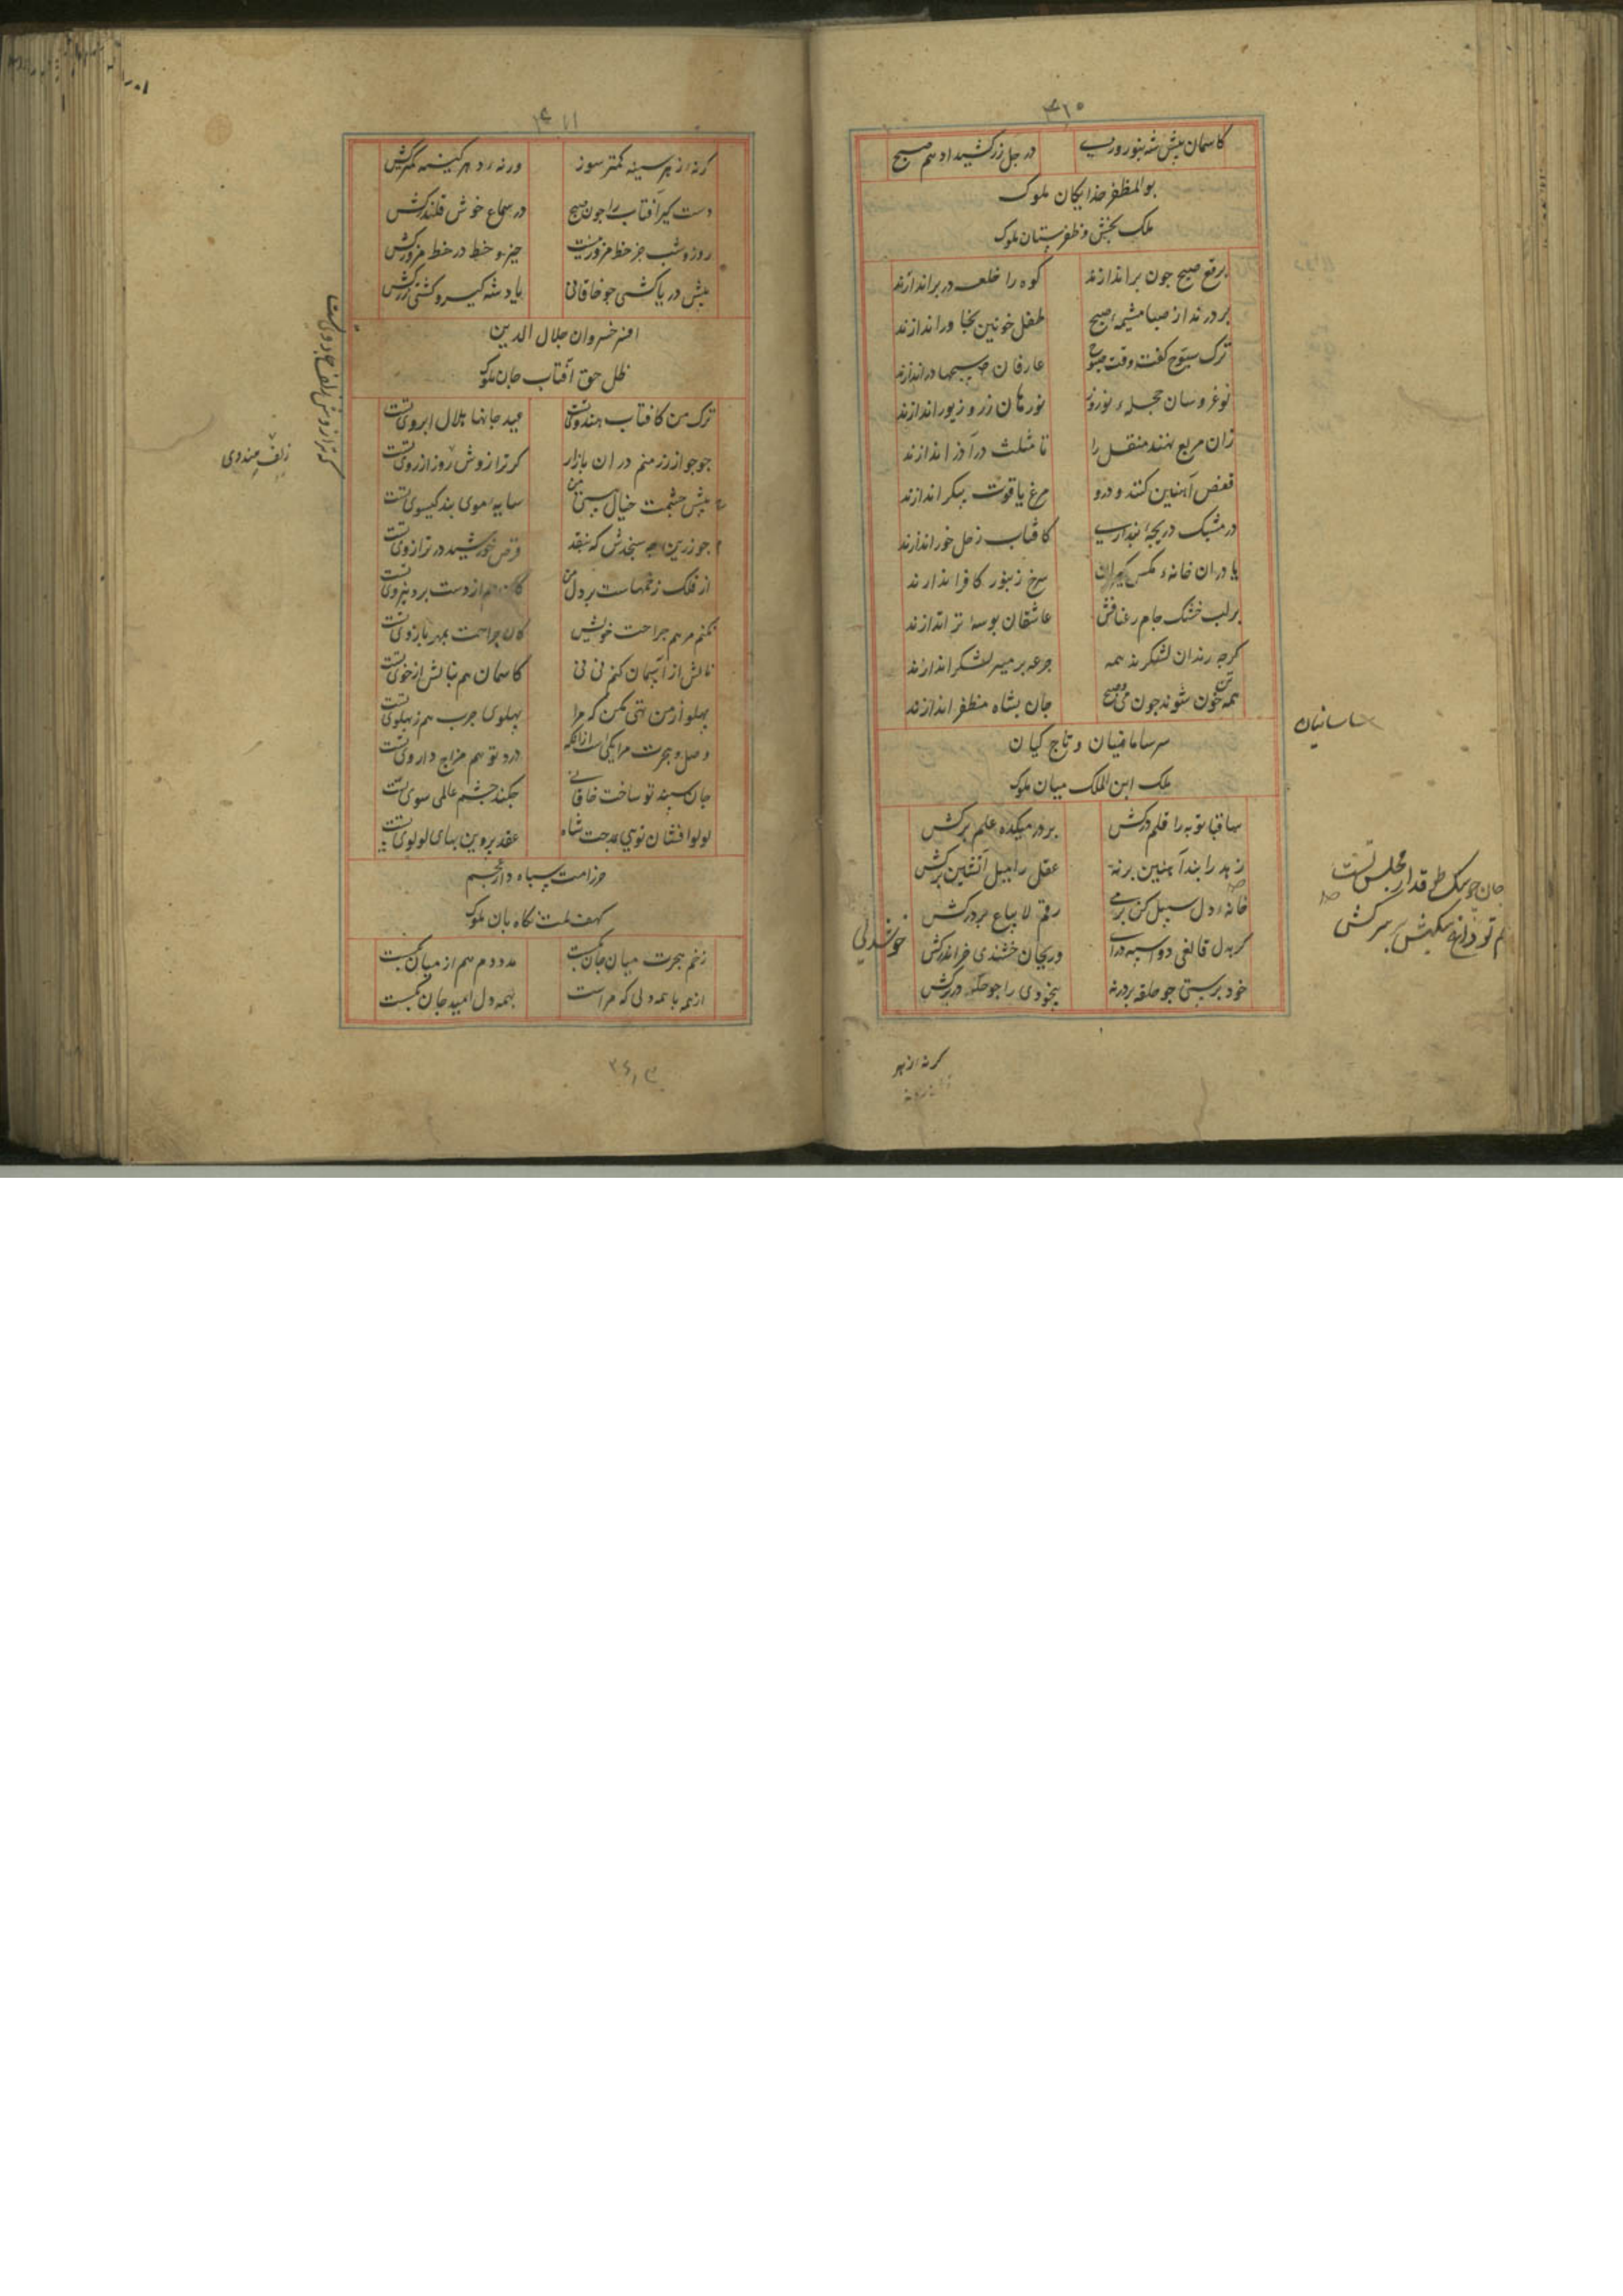 ۳۶۰
کاسمان پیش شه بنوروزی در جل زر کشید ادهم صبح
بوالمظفر خدایکان ملوک
ملک بخش و ظفرستان ملوک
برقع صبح جون براندازند کوه را خلعت در براندازند
بر درند از صبا مشیمهٔ صبح طفل خونین بخاوراندازند
ترک سبوح کفت وقت صبوح عارفان سبحها دراندازند
نوعروسان حجلهء نوروز نورهان زر و زیوراندازند
زان مربع نهند منقل را تا مثلث درآذر اندازند
قفص آهنین کنند و درو مرغ یاقوت پیکر اندازند
در مشبک دریجه پنداری کافتاب زحل خوراندازند
یا دران خانهء مکس کیران سرخ زنبور کافراندازند
بر لب خشک جام رعنافش عاشقان بوسهٔ تراندازند
کرجه رندان لشکرند همه جرعه بر میر لشکر اندازند
همه تن خون شوند جون می و صبح جان بشاه مظفر اندازند
سر سامانیان و تاج کیان
ساسانیان
ملک ابن الملک میان ملوک
ساقیا توبه را قلم درکش بر در میکده علم برکش
زهد را بند آهنین برنه عقل را میل آتشین برکش
جان جو سک طوقدار مجلس تست
هم تو داغ سکیش بر سرکش
خانهء دل سبیل کن بر می رقم لایباع بر درکش
کر بدل قانعی دو اسبه درآی وربجان خشندی خر اندرکش
خوشدلی
خود پرستی جو حلقه بر درنه بیخودی را جو حله در برکش
کرنه از بهر
۳۶۱
کرنه از بهر سینه کمتر سوز ورنه درد هر کینه کمترکش
دست کیر آفتاب را جون صبح در سماع خوش قلندرکش
روز و شب جز خط مزور نیست خیز و خط در خط مزورکش
پیش دریاکشی جو خاقانی یاد شه کیر و کشتی زرکش
افسر خسروان جلال الدین
ظل حق آفتاب جان ملوک
ترک من کافتاب هندوی تست عید جانها هلال ابروی تست
جوجو از زر منم دران بازار کر ترازوش روز از روی تست
که ترازوش زلف جادوی تست
زلف هندوی
پیش جشمت خیال هستی من سایهء موی بند کیسوی تست
جو زرین سنجدش که بنقد قرص خورشید در ترازوی تست
از فلک زخمهاست بر دل من کان هم از دست برد نیروی تست
نکنم مرهم جراحت خویش کان جراحت بمهر بازوی تست
نالش از آسمان کنم نی نی کاسمان هم بنالش از خوی تست
پهلو از من تهی مکن که مرا پهلوی جرب هم ز پهلوی تست
وصل و هجرت مرا یکی است ازانکه درد تو هم مزاج داروی تست
جان سپند تو ساخت خاقانی جکند جشم عالمی سوی تست
لولو افشان توی بمدحت شاه عقد پروین بهای لولوی تست
حرز امت سپاه دار عجم
کهف ملت نکاه بان ملوک
زخم هجرت میان جان بکست مدد دم هم از میان بکست
از همه با همه دلی که مراست بهمه دل امید جان بکست